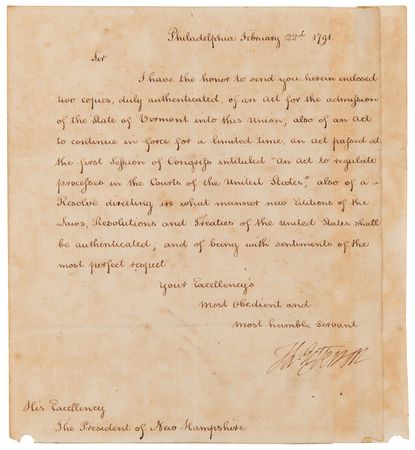 Philadelphia February 22d. 1791.
Sir
I have the honor to send you herein enclosed
two copies, duly authenticated, of an Act for the admission
of the State of Vermont into this Union; also of an Act
to continue in force for a limited time, an act passed at
the first Session of Congress intituled "An act to regulate
processes in the Courts of the United States," also of a
Resolve directing in what manner new Editions of the
Laws, Resolutions and Treaties of the United States shall
be authenticated; and of being with sentiments of the
most perfect respect
Your Excellency's
Most Obedient and
Most humble servant
Th. Jefferson
His Excellency
The President of New Hampshire